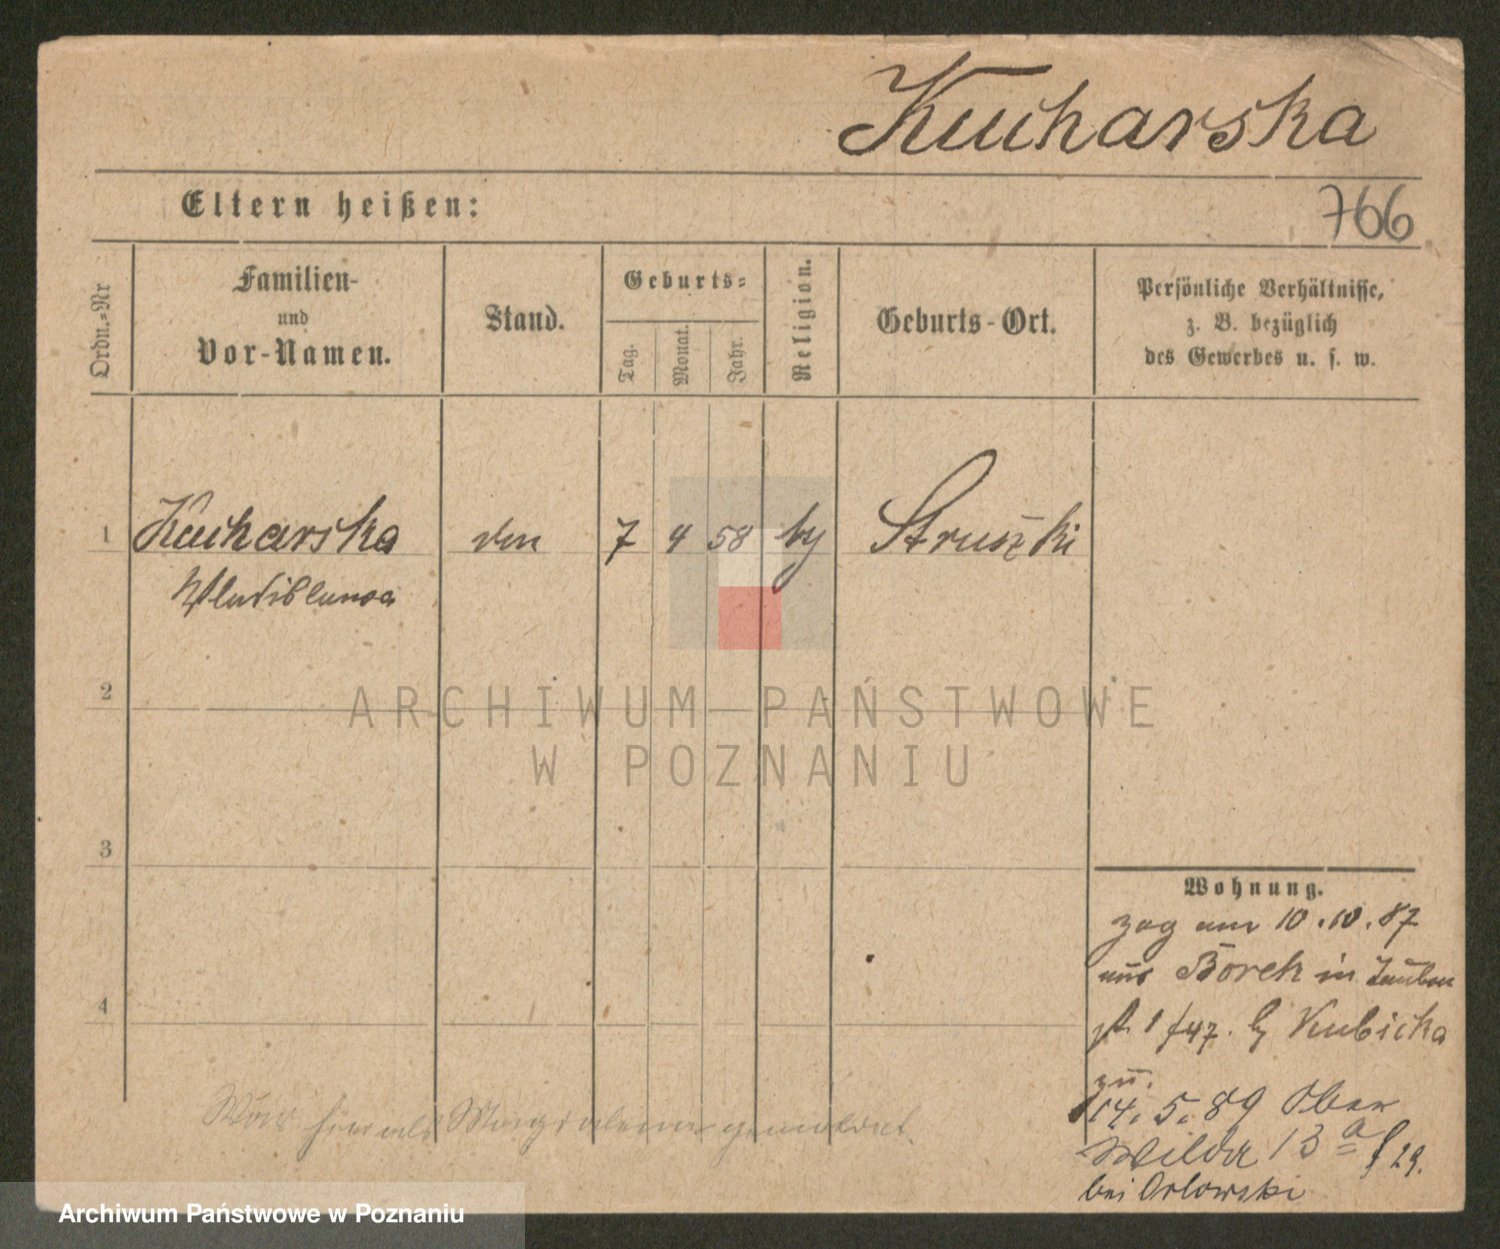 Kucharska
Eltern heißen:
766
Ordn.=Nr
Familien-
und
Vor-Namen.
Stand.
Geburts=
Tag.
Monat.
Jahr.
Religion.
Geburts-Ort.
Persönliche Verhältnisse,
z. B. bezüglich
des Gewerbes u. s. w.
1 Kucharska 7 4 58 Struszki
2
ARCHIWUM PAŃSTWOWE
W POZNANIU
3
Wohnung.
zog am 10.10.87
aus Borek in Tauben
1 f47. Kubicka
4
zu.
14.5.89 Ober
Wilda 13 a f 29.
bei Orlowski
War Magdalena gemeldet.
Archiwum Państwowe w Poznaniu